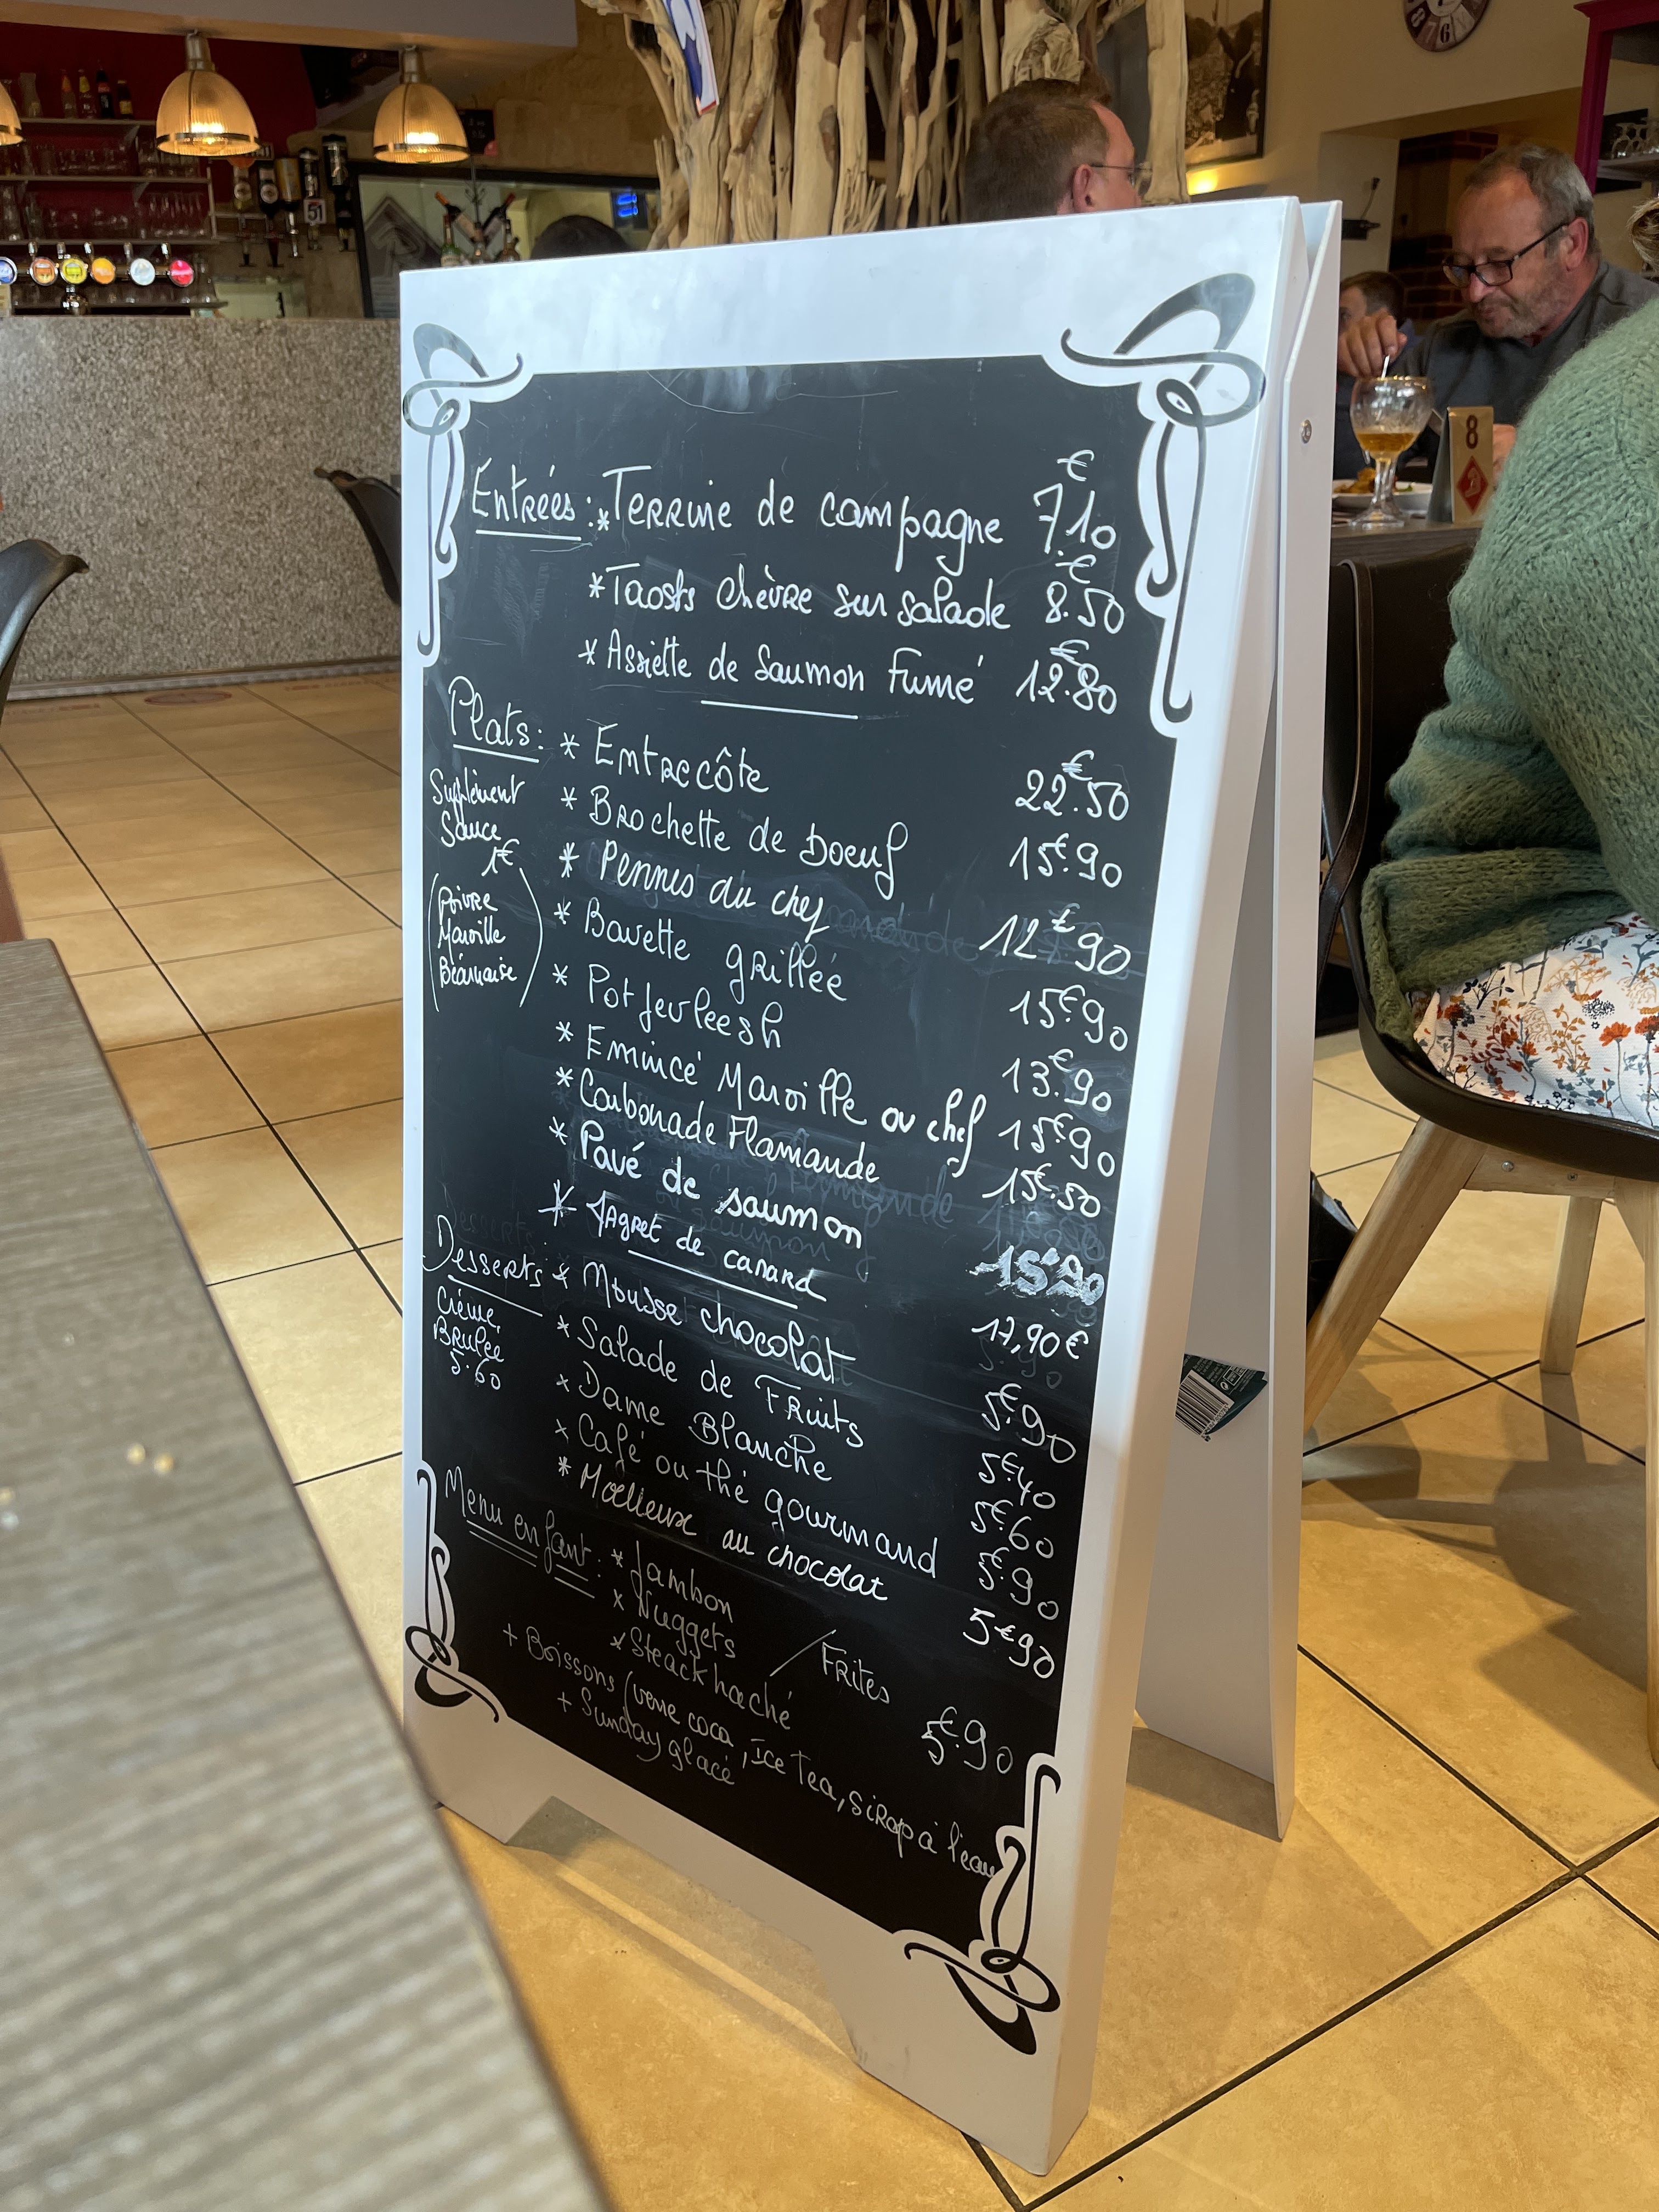 Entrées : * Terrine de campagne 7.10 €
* Taosts chèvre sur salade 8.50 €
* Assiette de Saumon Fumé 12.80 €
Plats : * Entrecôte 22.50 €
Suplément
Sauce
1€
(Poivre
Maroille
Béarnaise)
* Brochette de boeuf 15€.90
* Pennes du chef 12€90
* Bavette grillée 15€.90
* Potjevleesh 13€.90
* Emincé Maroille ou chef 15€.90
* Carbonade Flamande 15€.50
* Pavé de saumon 15€90
* Magret de canard 17,90€
Desserts * Mousse chocolat 5€.90
Crème
Brulée
5.60
* Salade de Fruits 5€.40
* Dame Blanche 5€.60
* Café ou thé gourmand 5€.90
* Moelleux au chocolat 5€90
Menu enfant : * Jambon
* Nuggets
* Steack haché / Frites 5€.90
+ Boissons (verre coca, Ice Tea, sirop à l'eau
+ Sunday glacé
8
51